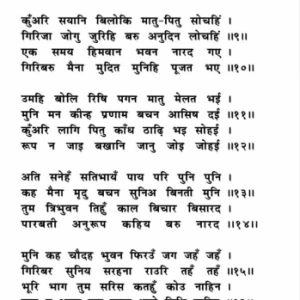 कुँअरि सयानि बिलोकि मातु-पितु सोचहिं ।
गिरिजा जोगु जुरिहि बरु अनुदिन लोचहिं ॥९॥
एक समय हिमवान भवन नारद गए ।
गिरिबरु मैना मुदित मुनिहि पूजत भए ॥१०॥
उमहि बोलि रिषि पगन मातु मेलत भई ।
मुनि मन कीन्ह प्रणाम बचन आसिष दई ॥११॥
कुँअरि लागि पितु काँध ठाढ़ि भइ सोहई ।
रूप न जाइ बखानि जानु जोइ जोहई ॥१२॥
अति सनेहँ सतिभायँ पाय परि पुनि पुनि ।
कह मैना मृदु बचन सुनिअ बिनती मुनि ॥१३॥
तुम त्रिभुवन तिहुँ काल बिचार बिसारद ।
पारबती अनुरूप कहिय बरु नारद ॥१४॥
मुनि कह चौदह भुवन फिरउँ जग जहँ जहँ ।
गिरिबर सुनिय सरहना राउरि तहँ तहँ ॥१५॥
भूरि भाग तुम सरिस कतहुँ कोउ नाहिन ।